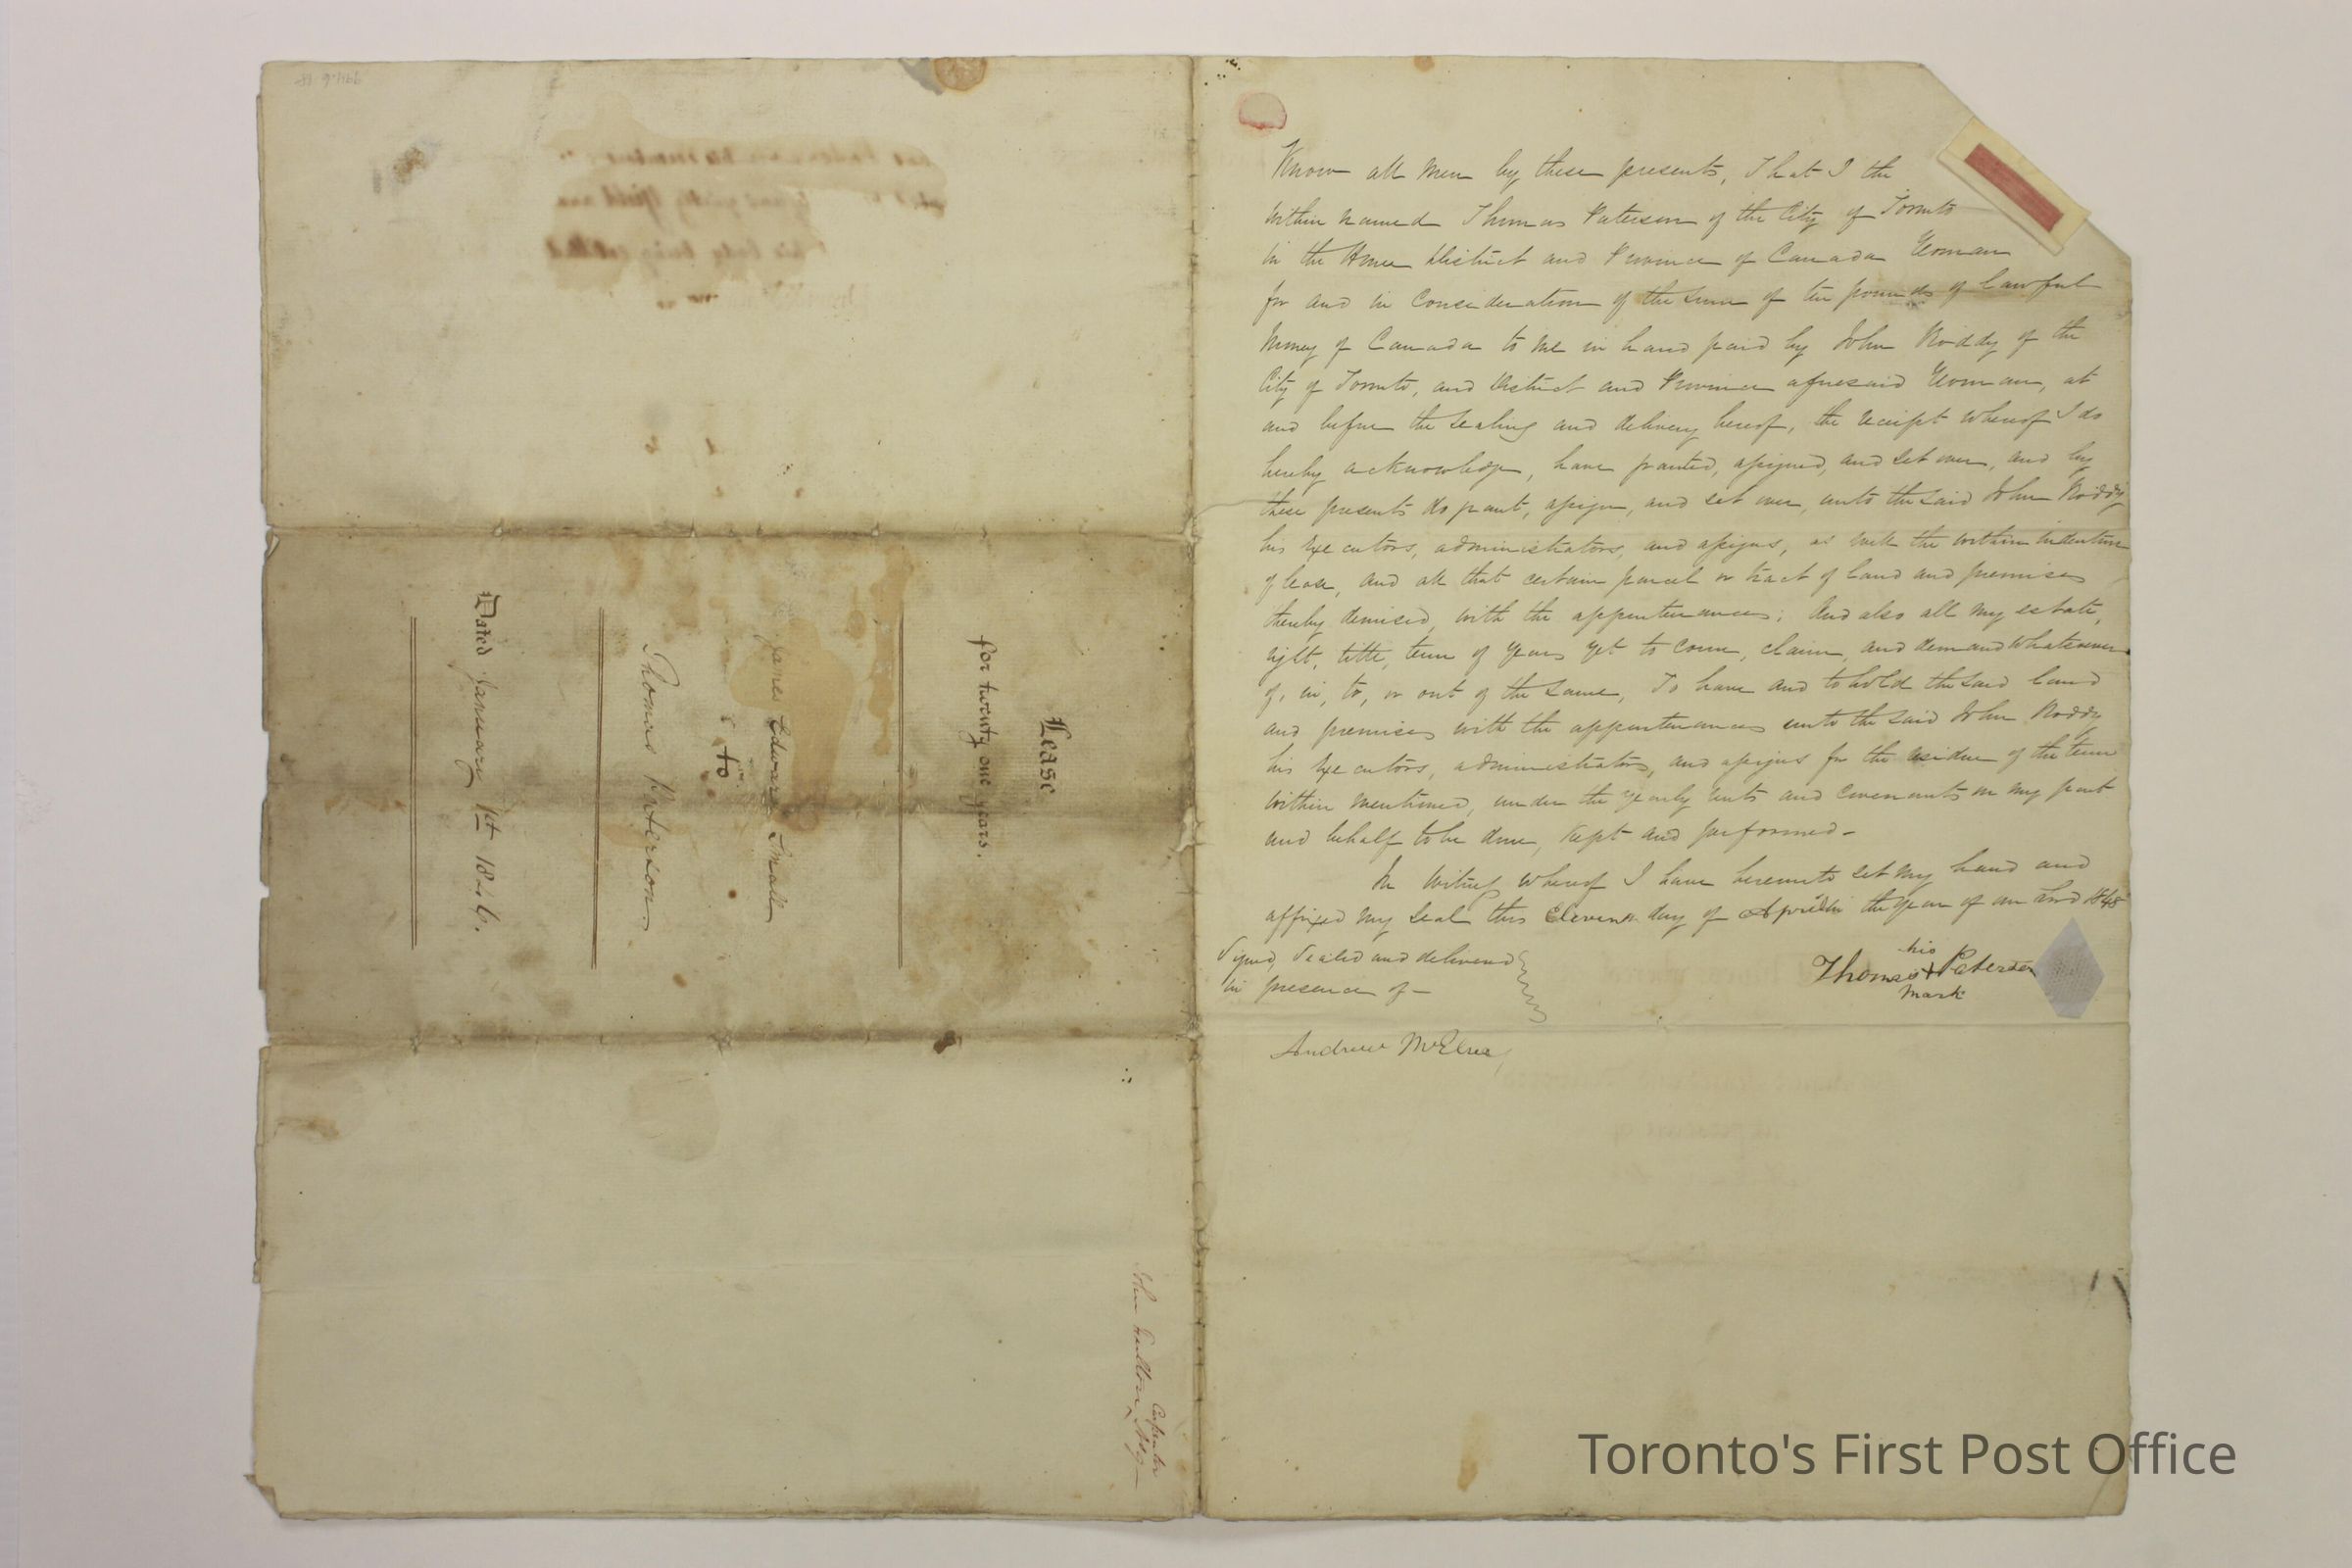 Lease
for twenty one years.
James Edward Small
to
Thomas Paterson
Dated January 1st
Carpenter
John
Know all men by these presents, That I the
within named Thomas Paterson of the City of Toronto
in the Home District and Province of Canada Yeoman
for and in Consideration of the sum of ten pounds of lawful
Money of Canada to me in hand paid by John Roddy of the
City of Toronto, and District and Province aforesaid Yeoman, at
and before the sealing and delivery hereof, the receipt whereof I do
hereby acknowledge, have granted, assigned, and set over, and by
these presents do grant, assign, and set over, unto the said John Roddy
his Executors, administrators, and assigns, as well the within Indenture
of lease, and all that certain parcel or tract of land and premises
thereby demised, with the appurtenances; And also all my estate,
right, title, term of Years yet to come, claim, and demand whatsoever
of, in, to, or out of the same, To have and to hold the said land
and premises with the appurtenances unto the said John Roddy
his Executors, administrators, and assigns for the residue of the term
within mentioned, under the yearly rents and covenants on my part
and behalf to be done, kept and performed-
In Witness whereof I have hereunto set my hand and
affixed my seal this Eleventh day of April in the Year of our Lord 1848
Signed, Sealed and delivered
in presence of-
his
Thomas + Paterson
mark
Andrew
Toronto's First Post Office